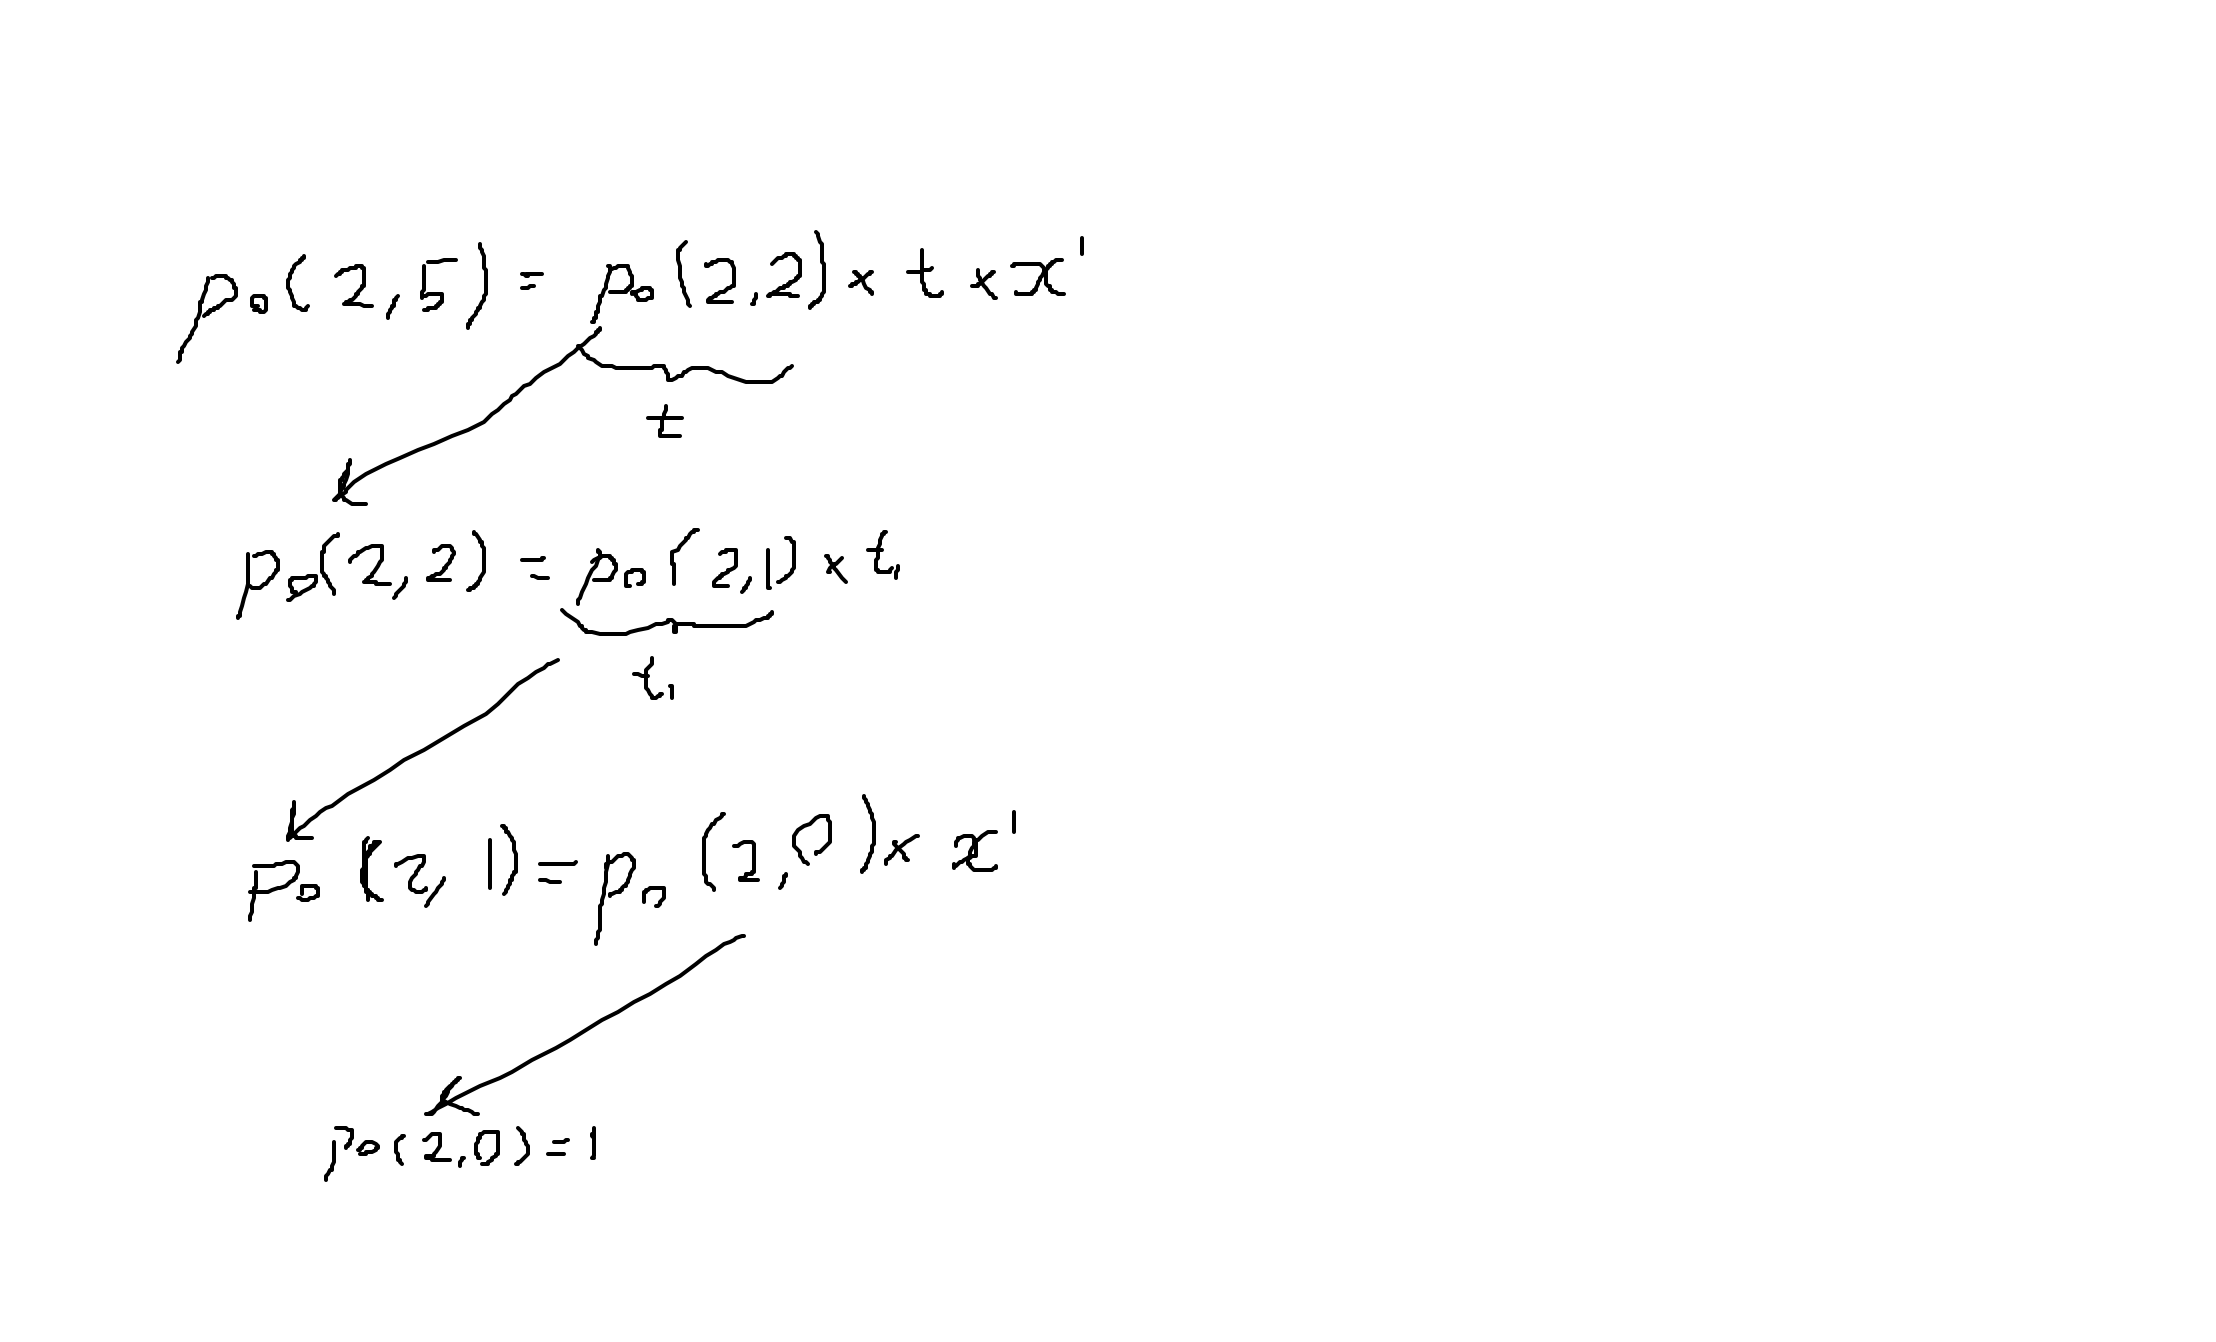 po(2,5) = po(2,2) × t × x'
t
po(2,2) = po(2,1) × t₁
t₁
po(2,1) = po(2,0) × x'
po(2,0) = 1